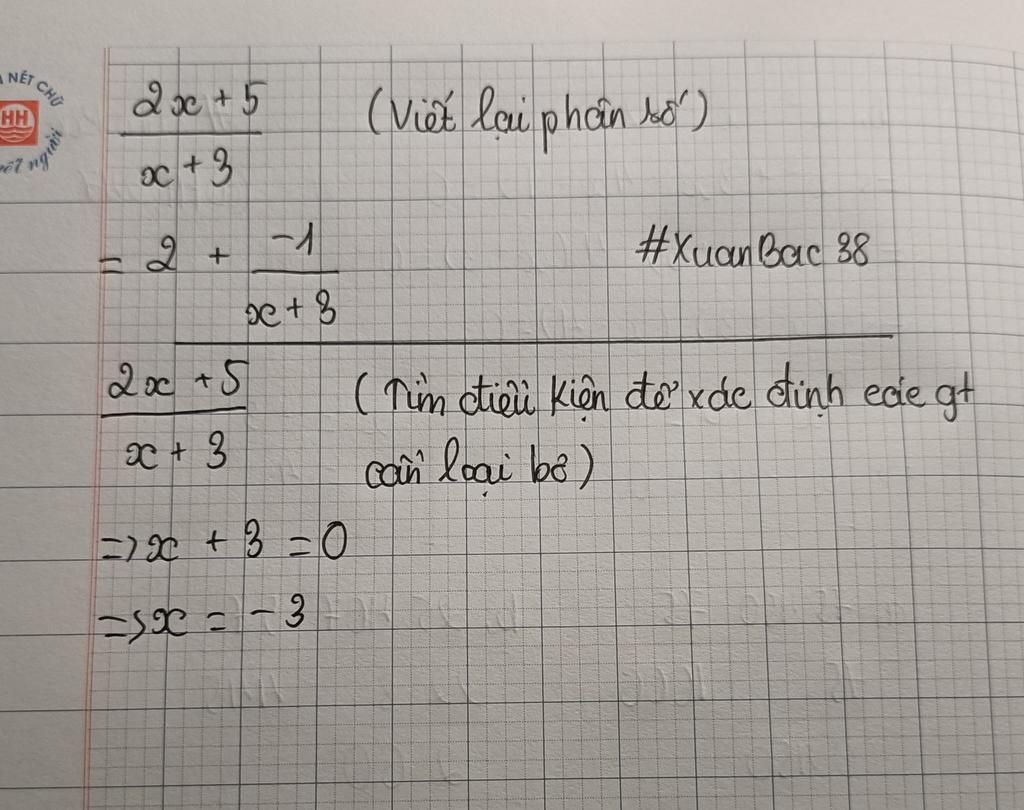 NÉT CHỮ
HH
nết người
2x + 5 (Viết lại phân số)
x + 3
= 2 + -1 #XuanBac 38
x + 3
2x + 5 (Tìm điều kiện để xác định các gt
x + 3 cần loại bỏ)
=> x + 3 = 0
=> x = - 3